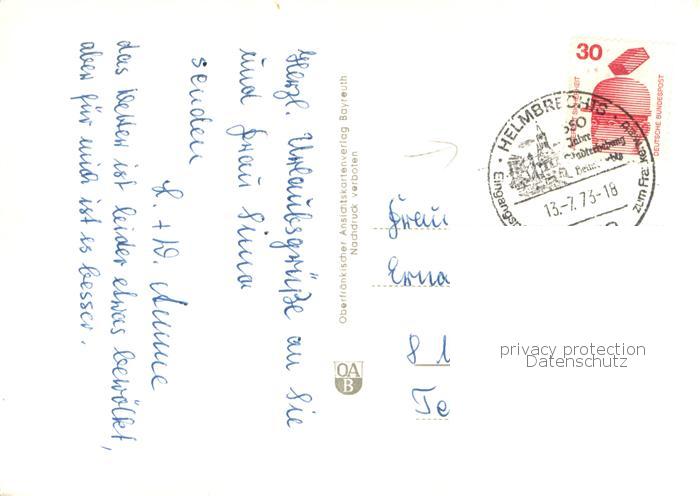 Herzl. Urlaubsgrüße an Sie
und Frau Sima
senden
L. + W. Aumme
das Wetter ist leider etwas bewölkt,
aber für mich ist es besser.
Oberfränkischer Ansichtskartenverlag Bayreuth
Nachdruck verboten
OA
B
Frau
Erna
8 1
Te
30
DEUTSCHE BUNDESPOST
HELMBRECHTS
550
Jahre
Stadterhebung
13.-7.73-18
Eingangst
zum Frankenwald
privacy protection
Datenschutz